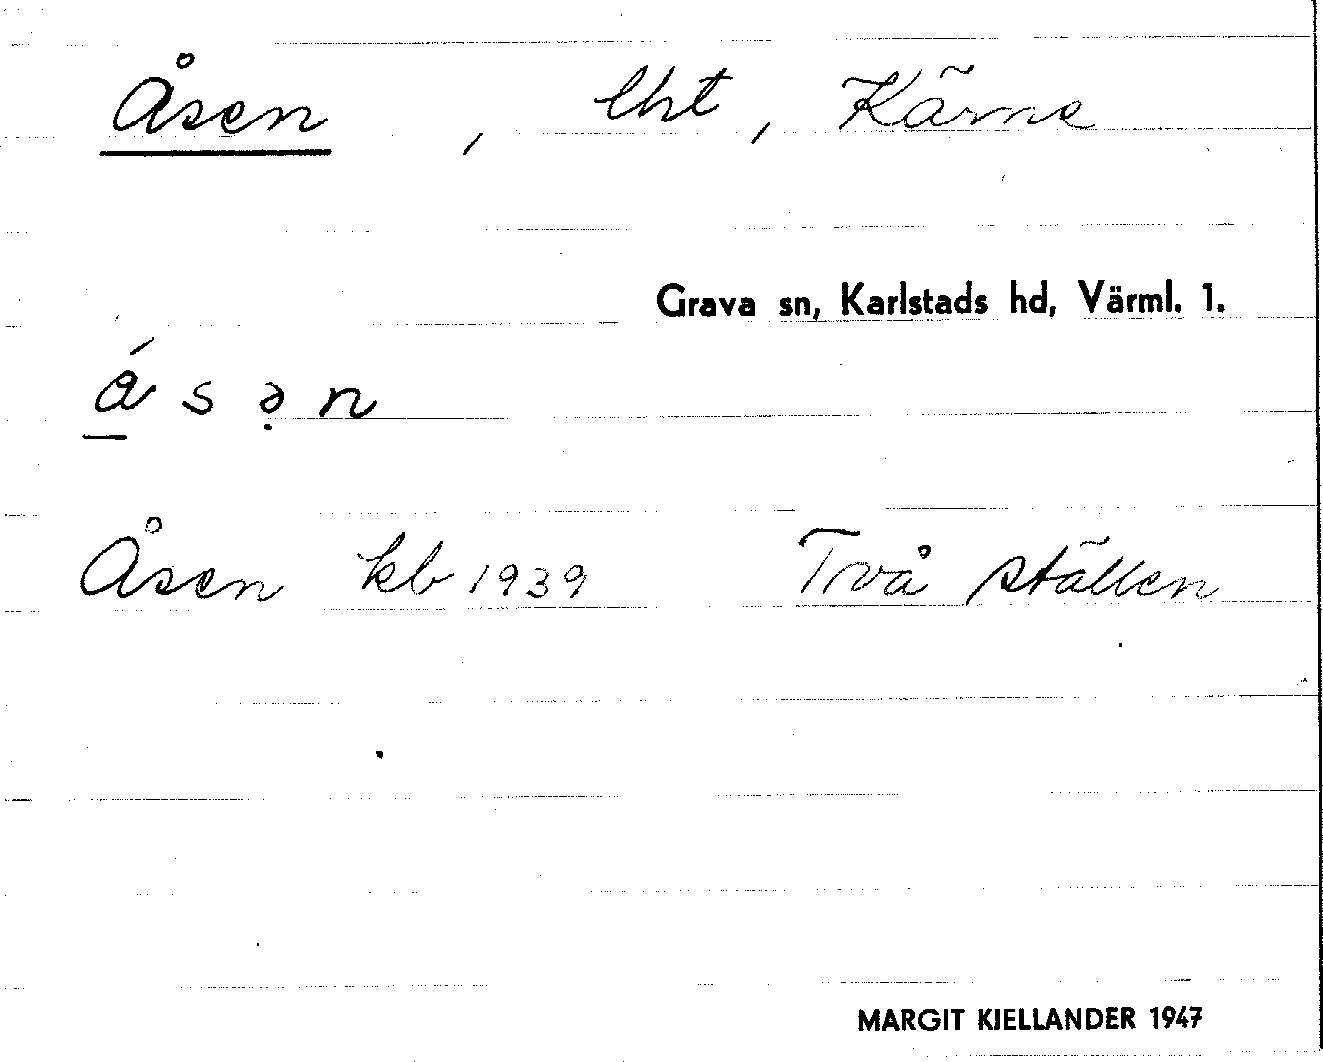 Åsen, lht, Kärne
Grava sn, Karlstads hd, Värml. 1.
ǻ s ə̣ n
Åsen kb 1939 Två ställen
MARGIT KJELLANDER 1947